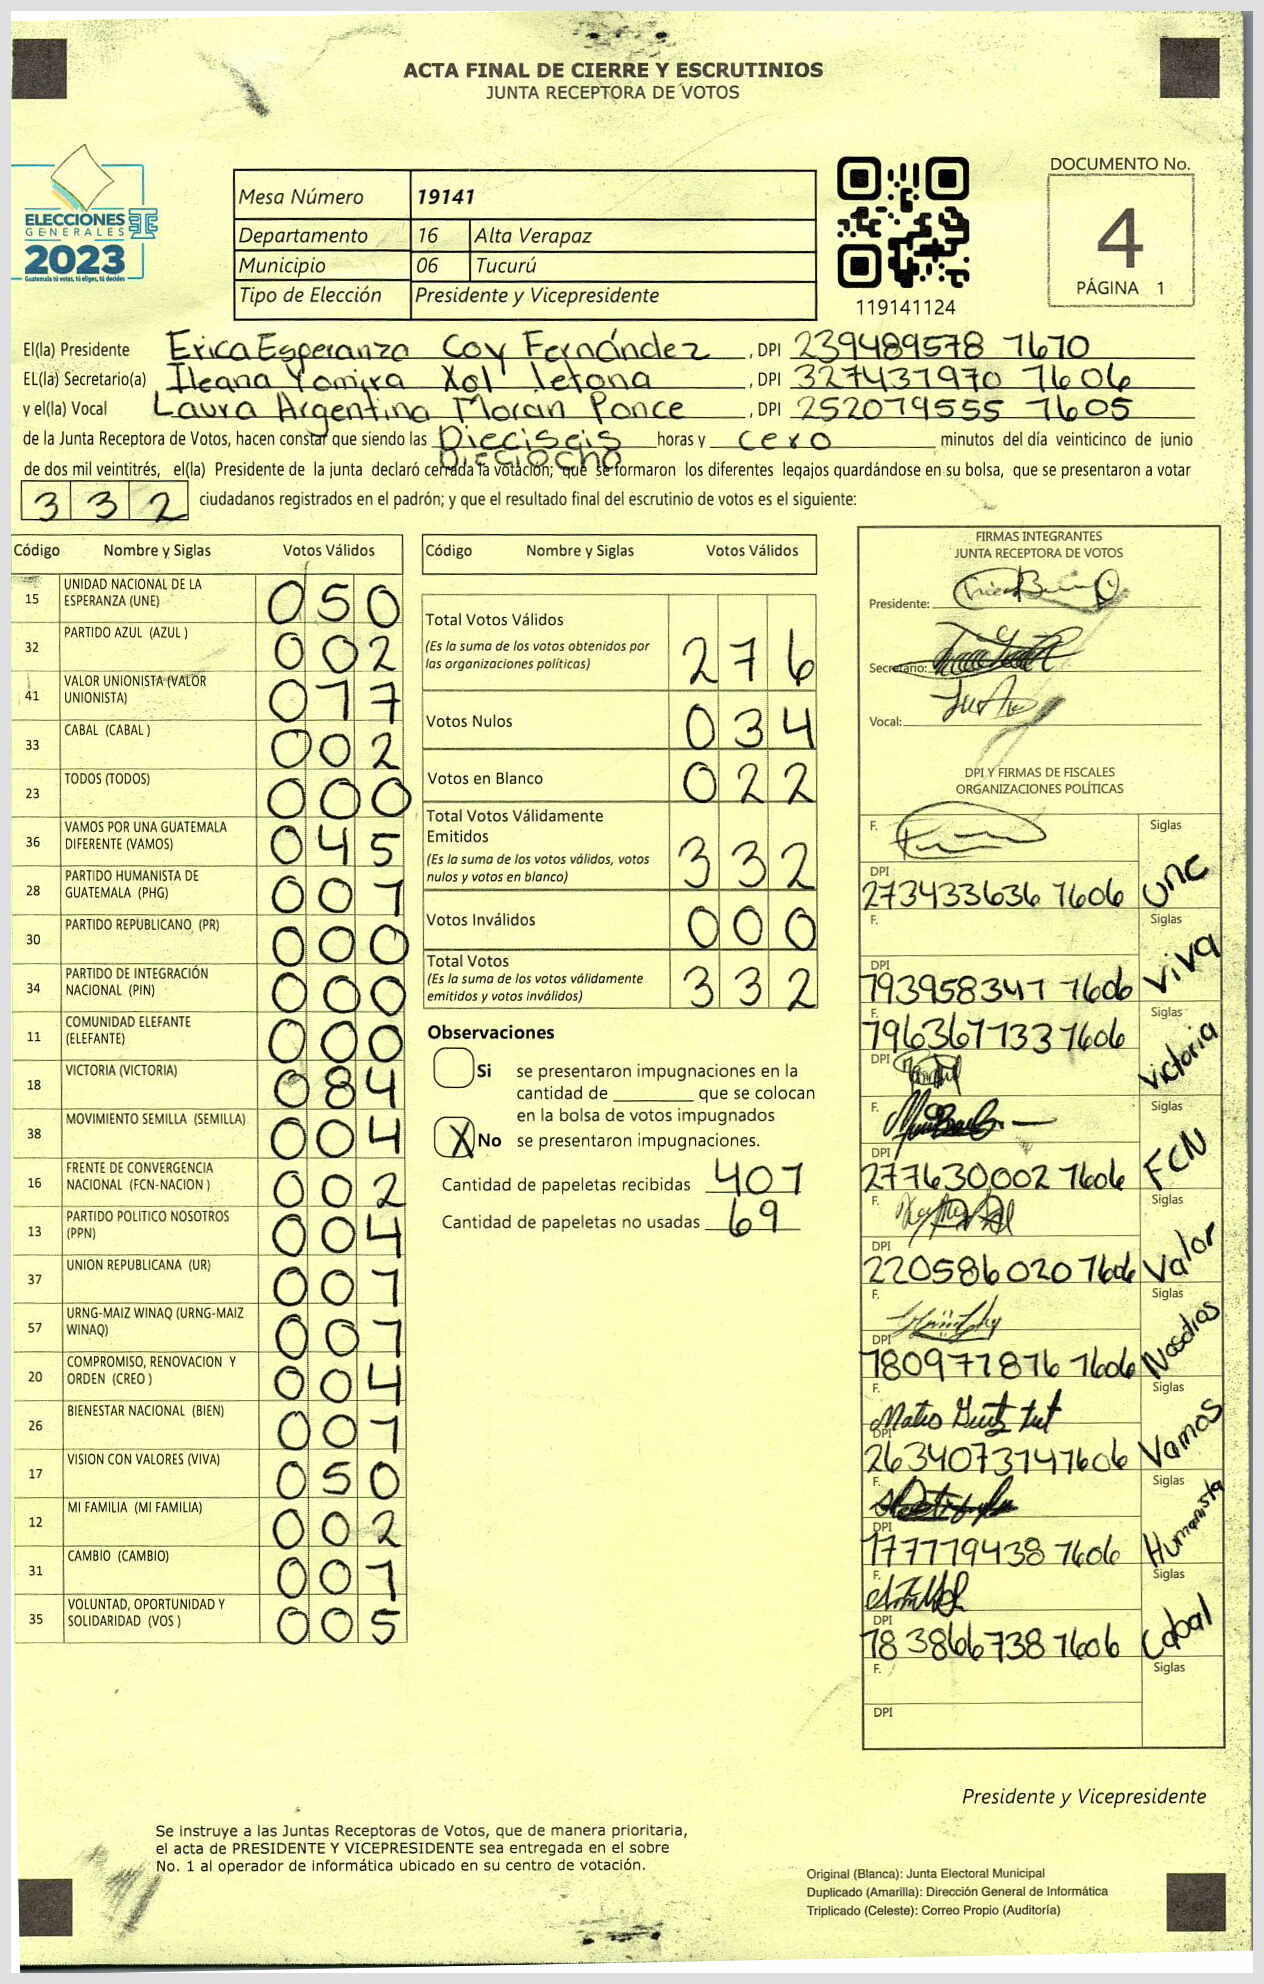 ACTA FINAL DE CIERRE Y ESCRUTINIOS
JUNTA RECEPTORA DE VOTOS
ELECCIONES
GENERALES
2023
Guatemala tú votas, tú eliges, tú decides
Mesa Número 19141
Departamento 16 Alta Verapaz
Municipio 06 Tucurú
Tipo de Elección Presidente y Vicepresidente
119141124
DOCUMENTO No.
4
PÁGINA 1
El(la) Presidente Erica Esperanza Coy Fernández , DPI 239489578 1610
EL(la) Secretario(a) Ileana Yamira Xol letona , DPI 327431970 1606
y el(la) Vocal Laura Argentina Morán Ponce , DPI 252019555 1605
de la Junta Receptora de Votos, hacen constar que siendo las Dieciseis horas y cero minutos del día veinticinco de junio
Dieciocho
de dos mil veintitrés, el(la) Presidente de la junta declaró cerrada la votación; que se formaron los diferentes legajos quardándose en su bolsa, que se presentaron a votar
332 ciudadanos registrados en el padrón; y que el resultado final del escrutinio de votos es el siguiente:
Código Nombre y Siglas Votos Válidos
15 UNIDAD NACIONAL DE LA ESPERANZA (UNE) 050
32 PARTIDO AZUL (AZUL ) 002
41 VALOR UNIONISTA (VALOR UNIONISTA) 017
33 CABAL (CABAL ) 002
23 TODOS (TODOS) 000
36 VAMOS POR UNA GUATEMALA DIFERENTE (VAMOS) 045
28 PARTIDO HUMANISTA DE GUATEMALA (PHG) 001
30 PARTIDO REPUBLICANO (PR) 000
34 PARTIDO DE INTEGRACIÓN NACIONAL (PIN) 000
11 COMUNIDAD ELEFANTE (ELEFANTE) 000
18 VICTORIA (VICTORIA) 084
38 MOVIMIENTO SEMILLA (SEMILLA) 004
16 FRENTE DE CONVERGENCIA NACIONAL (FCN-NACION ) 002
13 PARTIDO POLITICO NOSOTROS (PPN) 004
37 UNION REPUBLICANA (UR) 001
57 URNG-MAIZ WINAQ (URNG-MAIZ WINAQ) 001
20 COMPROMISO, RENOVACION Y ORDEN (CREO ) 004
26 BIENESTAR NACIONAL (BIEN) 001
17 VISION CON VALORES (VIVA) 050
12 MI FAMILIA (MI FAMILIA) 002
31 CAMBIO (CAMBIO) 001
35 VOLUNTAD, OPORTUNIDAD Y SOLIDARIDAD (VOS ) 005
Código Nombre y Siglas Votos Válidos
Total Votos Válidos 276
(Es la suma de los votos obtenidos por
las organizaciones políticas)
Votos Nulos 034
Votos en Blanco 022
Total Votos Válidamente
Emitidos 332
(Es la suma de los votos válidos, votos
nulos y votos en blanco)
Votos Inválidos 000
Total Votos 332
(Es la suma de los votos válidamente
emitidos y votos inválidos)
Observaciones
Si se presentaron impugnaciones en la
cantidad de ________ que se colocan
en la bolsa de votos impugnados
X No se presentaron impugnaciones.
Cantidad de papeletas recibidas 401
Cantidad de papeletas no usadas 69
FIRMAS INTEGRANTES
JUNTA RECEPTORA DE VOTOS
Presidente:
Secretario:
Vocal:
DPI Y FIRMAS DE FISCALES
ORGANIZACIONES POLÍTICAS
F. Siglas
DPI 273433636 1606 Unc
F. Siglas
DPI 193958341 1606 Viva
F. 196361133 1606 Siglas
DPI Victoria
F. Siglas
DPI 277630002 1606 FCN
F. Siglas
DPI 220586020 1606 Valor
F. Siglas
DPI 180971876 1606 Nosotros
F. Siglas
DPI 263407314 1606 Vamos
F. Siglas
DPI 177719438 1606 Humanista
F. Siglas
DPI 183866738 1606 Cabal
F. Siglas
DPI
Presidente y Vicepresidente
Se instruye a las Juntas Receptoras de Votos, que de manera prioritaria,
el acta de PRESIDENTE Y VICEPRESIDENTE sea entregada en el sobre
No. 1 al operador de informática ubicado en su centro de votación.
Original (Blanca): Junta Electoral Municipal
Duplicado (Amarilla): Dirección General de Informática
Triplicado (Celeste): Correo Propio (Auditoría)